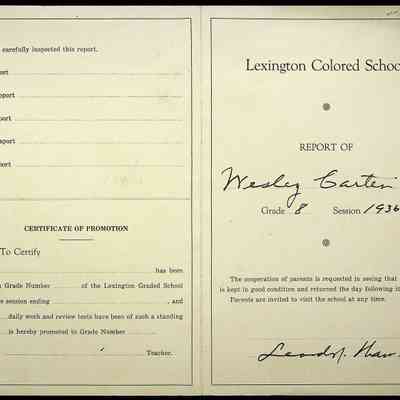 carefully inspected this report.
port
eport
port
eport
port
CERTIFICATE OF PROMOTION
To Certify
has been
Grade Number of the Lexington Graded School
e session ending , and
daily work and review tests have been of such a standing
is hereby promoted to Grade Number
Teacher.
Lexington Colored Schoo
REPORT OF
Wesley Carter
Grade 8 Session 1936
The cooperation of parents is requested in seeing that
is kept in good condition and returned the day following it
Parents are invited to visit the school at any time.